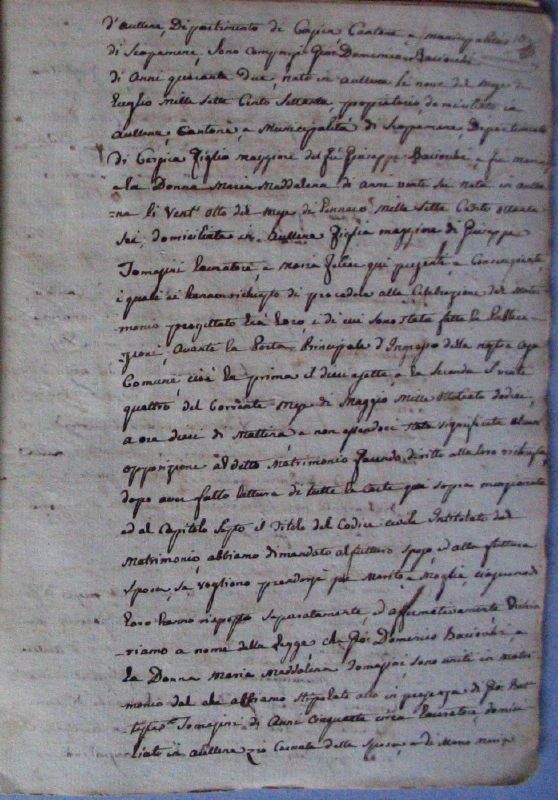 d'aullena, Dipartimento di Corsica Cantone, e municipalità
di Scopamene, Sono Comparsi Gio: Domenico Baciocchi
di Anni quaranta due, nato in aullena le nove del Mese di
Luglio Mille Sette Cento Settanta, proprietario domiciliato in
aullena, Cantone, e Municipalità di Scopamene, Dipartimento
di Corsica Figlio maggiore del fù Giuseppe Baciocchi, e fù Maria
e la Donna Maria Maddalena di anni venti Sei nata in aulle
=na li Vent' Otto del Mese di Gennaro Mille Sette Cento ottanta
Sei, domiciliata in Aullena Figlia maggiore di Giuseppe
Tomasini Lavoratore, e Maria Felice qui presente, e Consenziente,
i quali ci hanno richiesto di procedere alla Celebrazione del Matri
monio progettato trà Loro, e di cui sono state fatte le Pubblica
=zioni, avanti la Porta Principale d'Ingresso della nostra Casa
Comune, cioè la prima il dieci sette, e la Seconda il venti
quattro del Corrente Mese di Maggio Mille Ottocento dodici,
a ore dieci di Mattina e non essendoci stata significata alcuna
opposizione al detto Matrimonio facendo diritto alla loro richiesta,
dopo aver fatto lettura di tutte le Carte qui sopra menzionate
ed al Capitolo Sesto il Titolo del Codice civile Intitolato del
Matrimonio, abbiamo dimandato al futuro Sposo, ed alla futura
Sposa, se vogliono prendersi per Marito, e Moglie, ciascuno di
loro hanno risposto Separatamente, ed affermativamente Dichia
riamo a nome della Legge che Gio: Domenico Baciocchi, e
la Donna Maria Maddalena Tomasini sono uniti in Matri
monio dal che abbiamo Stipolato atto in presenza di Gio: Bat
tista Tomasini di Anni Cinquanta circa Lavoratore domici
liato in aullena Cognato della Sposa, e di